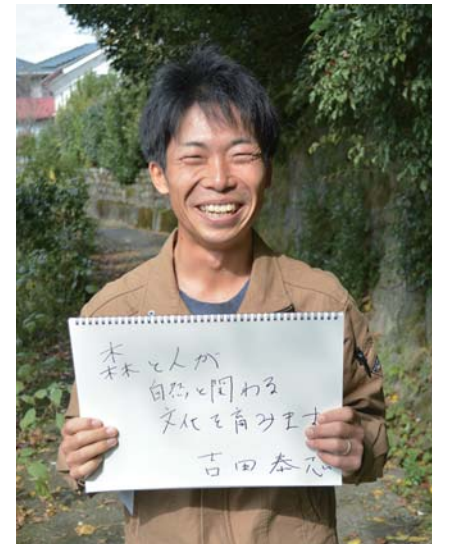 森と人が
自然と関わる
文化を育みます
吉田泰